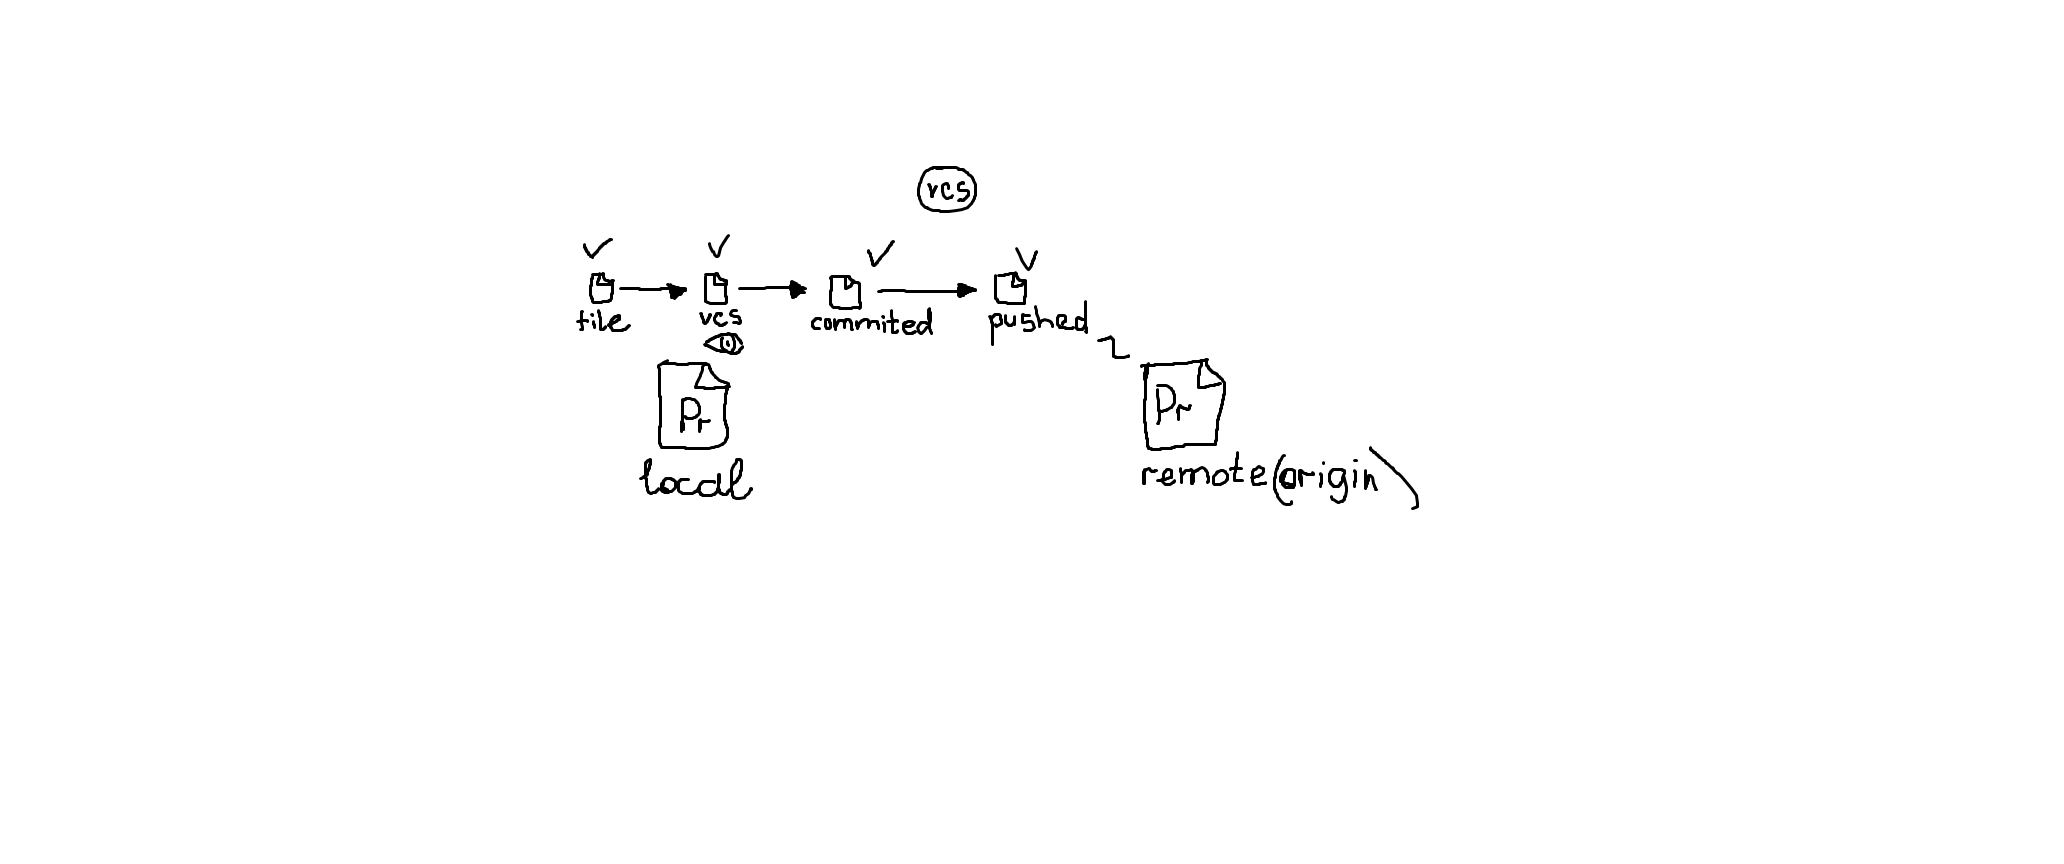 vcs
file
vcs
commited
pushed
Pr
Pr
local
remote(origin)